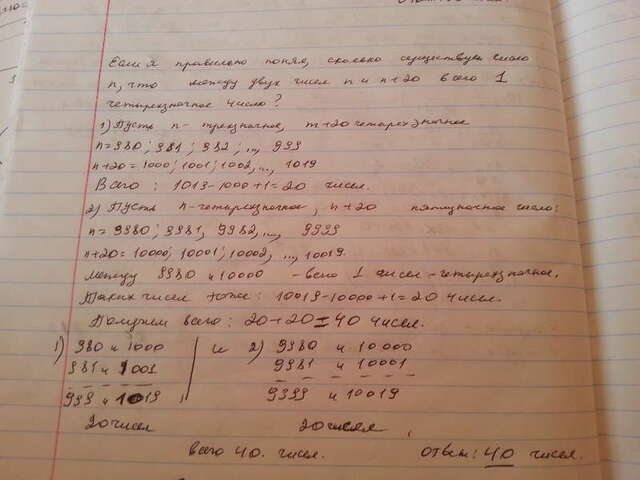 Если я правильно понял, сколько существует число
n, что между двух чисел n и n+20 всего 1
четырехзначное число?
1) Пусть n - трехзначное, n+20 четырехзначное
n = 980; 981; 982; ..., 999
n+20 = 1000; 1001; 1002, ..., 1019
Всего: 1019-1000+1=20 чисел.
2) Пусть n-четырехзначное, n+20 пятизначное число:
n = 9980; 9981, 9982, ..., 9999
n+20 = 10000; 10001; 10002, ..., 10019.
между 9980 и 10000 - всего 1 чисел - четырехзначное.
Таких чисел тоже: 10019-10000+1=20 чисел.
Получаем всего: 20+20=40 чисел.
1) 980 и 1000 и 2) 9980 и 10000
981 и 1001 9981 и 10001
999 и 1019, 9999 и 10019
20 чисел 20 чисел,
всего 40. чисел. ответ: 40 чисел.